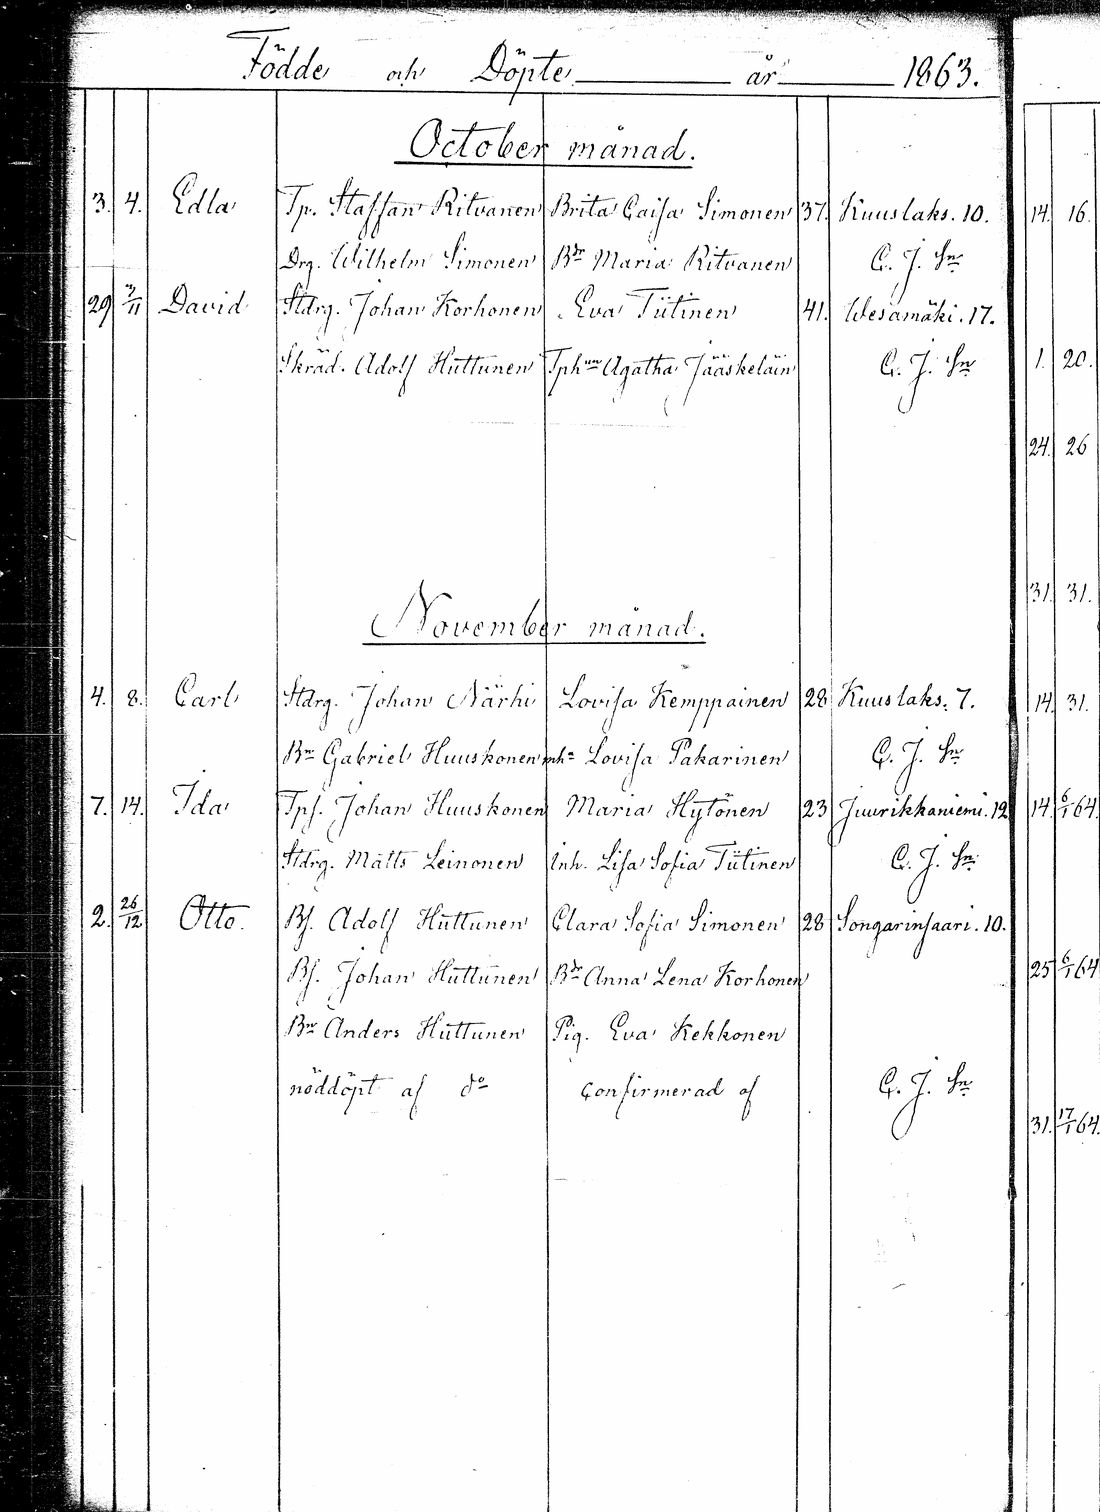 Födde och Döpte år 1863.
October månad.
3. 4. Edla Tp. Staffan Ritvanen Brita Caisa Simonen 37. Kuuslaks. 10.
Drg. Wilhelm Simonen Bdr Maria Ritvanen C. J. Sn
29 3/11 David Stdrg. Johan Korhonen Eva Tiitinen 41. Wesamäki. 17.
Skräd. Adolf Huttunen Tphun Agatha Jääskeläin C. J. Sn
November månad.
4. 8. Carl Stdrg. Johan Närhi Lovisa Kemppainen 28 Kuuslaks. 7.
Bn Gabriel Huuskonen Lovisa Pakarinen C. J. Sn
7. 14. Ida Tps. Johan Huuskonen Maria Hytönen 23 Juurikkaniemi. 12
Stdrg. Matts Leinonen Inh. Lisa Sofia Tiitinen C. J. Sn
2. 26/12 Otto. Bs. Adolf Huttunen Clara Sofia Simonen 28 Songarinsaari. 10.
Bs. Johan Huttunen Bdr Anna Lena Korhonen
Bn Anders Huttunen Pig. Eva Kekkonen
nöddöpt af do confirmerad af C. J. Sn
14. 16.
1. 20.
24. 26
31. 31.
14. 31.
14. 6/1 64.
25 6/1 64
31. 17/1 64.